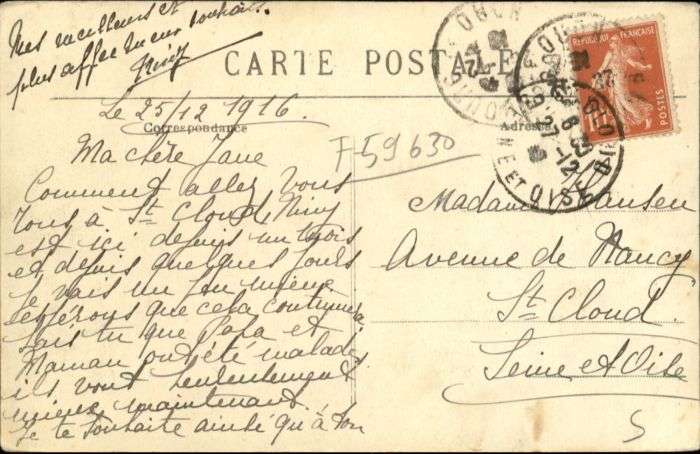 Mes meilleurs et
plus affectueux souhaits.
Niny
CARTE POSTALE
Le 25/12 1916.
Correspondance
Adresse
REPUBLIQUE FRANÇAISE
POSTES
10
ET OISE
F59630
Ma chère Jane
Comment allez vous
tous à St Cloud. Niny
est ici depuis un mois
et depuis quelques jours
je vais un peu mieux
espérons que cela continuera
sais tu que Papa et
Maman ont été malades
ils vont seulement
mieux maintenant.
Je te souhaite ainsi qu'à ton
Madame Hansen
Avenue de Nancy
St Cloud.
Seine et Oise
5